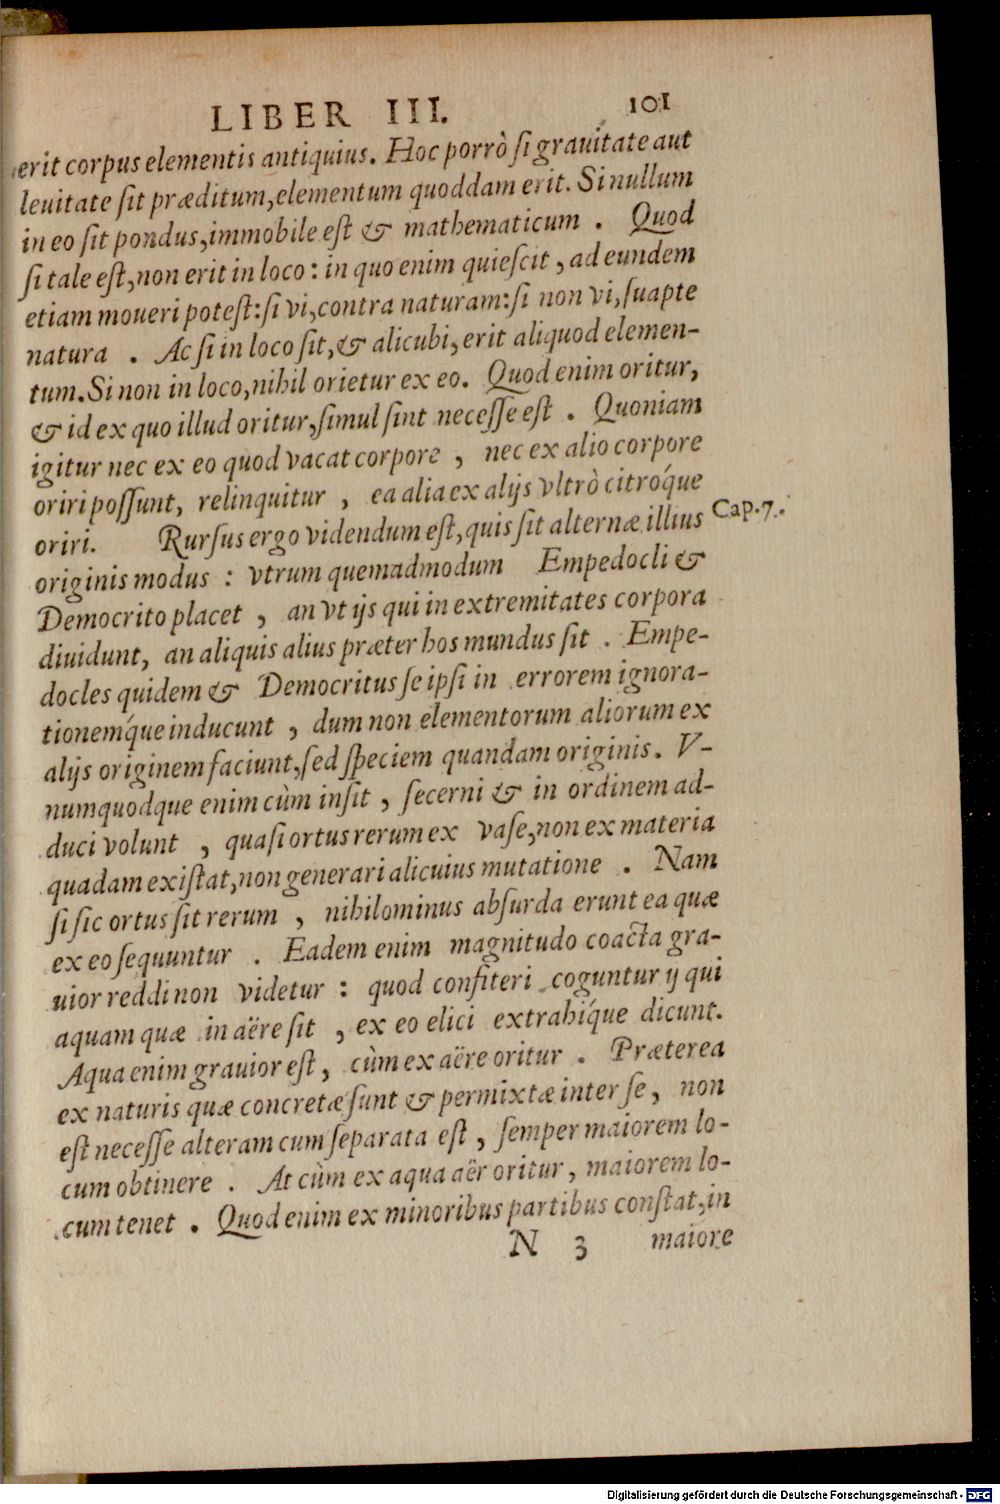 LIBER III. 101
erit corpus elementis antiquius. Hoc porrò ſi grauitate aut
leuitate ſit præditum, elementum quoddam erit. Si nullum
in eo ſit pondus, immobile eſt & mathematicum . Quod
ſi tale eſt, non erit in loco : in quo enim quieſcit , ad eundem
etiam moueri poteſt: ſi vi, contra naturam: ſi non vi, ſuapte
natura . Ac ſi in loco ſit, & alicubi, erit aliquod elemen-
tum. Si non in loco, nihil orietur ex eo. Quod enim oritur,
& id ex quo illud oritur, ſimul ſint neceſſe eſt . Quoniam
igitur nec ex eo quod vacat corpore , nec ex alio corpore
oriri poſſunt, relinquitur , ea alia ex alijs vltrò citróque
oriri. Rurſus ergo videndum eſt, quis ſit alternæ illius
Cap.7.
originis modus : vtrum quemadmodum Empedocli &
Democrito placet , an vt ijs qui in extremitates corpora
diuidunt, an aliquis alius præter hos mundus ſit . Empe-
docles quidem & Democritus ſe ipſi in errorem ignora-
tionemque inducunt , dum non elementorum aliorum ex
alijs originem faciunt, ſed ſpeciem quandam originis. V-
numquodque enim cùm inſit , ſecerni & in ordinem ad-
duci volunt , quaſi ortus rerum ex vaſe, non ex materia
quadam exiſtat, non generari alicuius mutatione . Nam
ſi ſic ortus ſit rerum , nihilominus abſurda erunt ea quæ
ex eo ſequuntur . Eadem enim magnitudo coacta gra-
uior reddi non videtur : quod confiteri coguntur ij qui
aquam quæ in aëre ſit , ex eo elici extrahíque dicunt.
Aqua enim grauior eſt , cùm ex aëre oritur . Præterea
ex naturis quæ concretæ ſunt & permixtæ inter ſe , non
eſt neceſſe alteram cum ſeparata eſt , ſemper maiorem lo-
cum obtinere . At cùm ex aqua aër oritur , maiorem lo-
cum tenet . Quod enim ex minoribus partibus conſtat, in
N 3 maiore
Digitalisierung gefördert durch die Deutsche Forschungsgemeinschaft - DFG